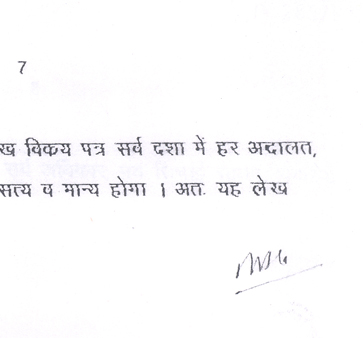 7
ख विकय पत्र सर्व दशा में हर अदालत,
सत्य व मान्य होगा । अतः यह लेख